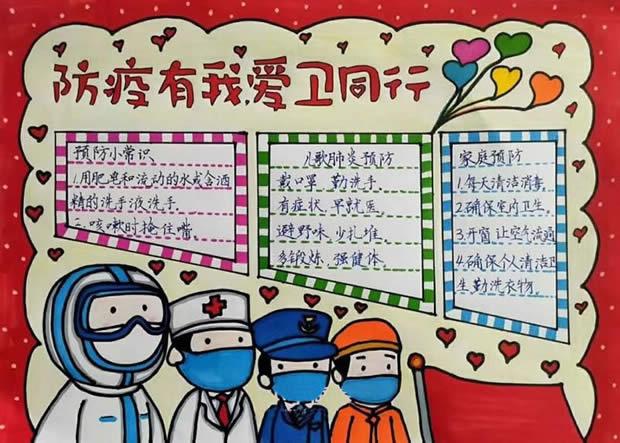 防疫有我,爱卫同行
预防小常识
1.用肥皂和流动的水或含酒
精的洗手液洗手.
二.咳嗽时掩住嘴.
儿歌肺炎预防
戴口罩 勤洗手.
有症状 早就医.
避野味 少扎堆.
多锻炼 强健体.
家庭预防
1.每天清洁消毒.
2.确保室内卫生.
3.开窗让空气流通
4.确保个人清洁卫
生勤洗衣物.